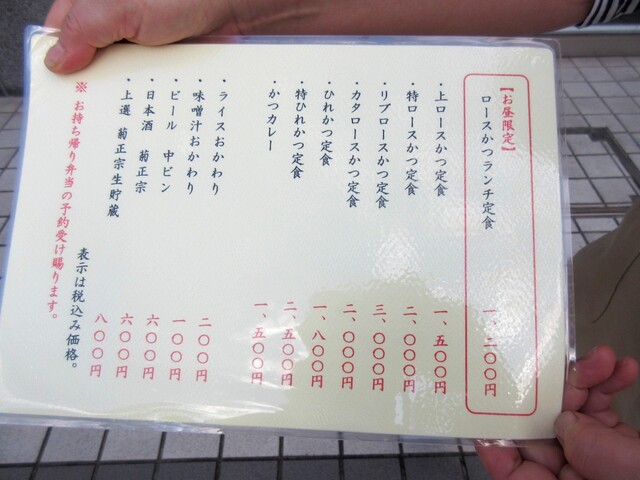 【お昼限定】
ロースかつランチ定食 一、二〇〇円
・上ロースかつ定食 一、五〇〇円
・特ロースかつ定食 二、〇〇〇円
・リブロースかつ定食 三、〇〇〇円
・カタロースかつ定食 二、〇〇〇円
・ひれかつ定食 一、八〇〇円
・特ひれかつ定食 二、五〇〇円
・かつカレー 一、五〇〇円
・ライスおかわり 二〇〇円
・味噌汁おかわり 一〇〇円
・ビール 中ビン 六〇〇円
・日本酒 菊正宗 六〇〇円
・上選 菊正宗生貯蔵 八〇〇円
表示は税込み価格。
※お持ち帰り弁当の予約受け賜ります。